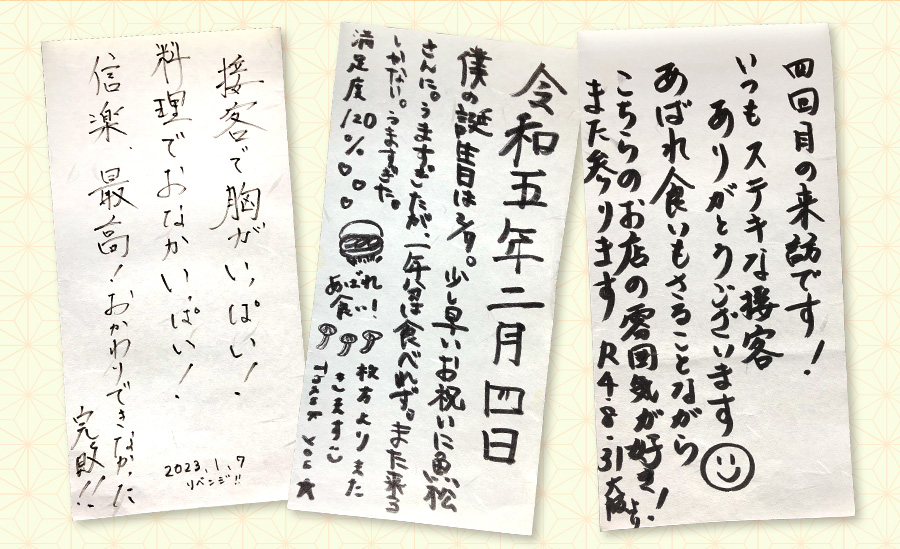 四回目の来訪です！
いつもステキな接客
ありがとうございます
あばれ食いもさることながら
こちらのお店の雰囲気が好き！
また参ります R4.8.31 大阪より.
令和五年二月四日
僕の誕生日は2/9。少し早いお祝いに魚松
さんに。うますぎたが、一年分は食べれず。また来る
しかない。うますぎた。
満足度120%♡♡♡
あばれ
食い！
枚方よりまた
きます
Thank you
接客で胸がいっぱい！
料理でおなかいっぱい！
信楽、最高！おかわりできなかった
完敗!!
2023.1.7
リベンジ!!